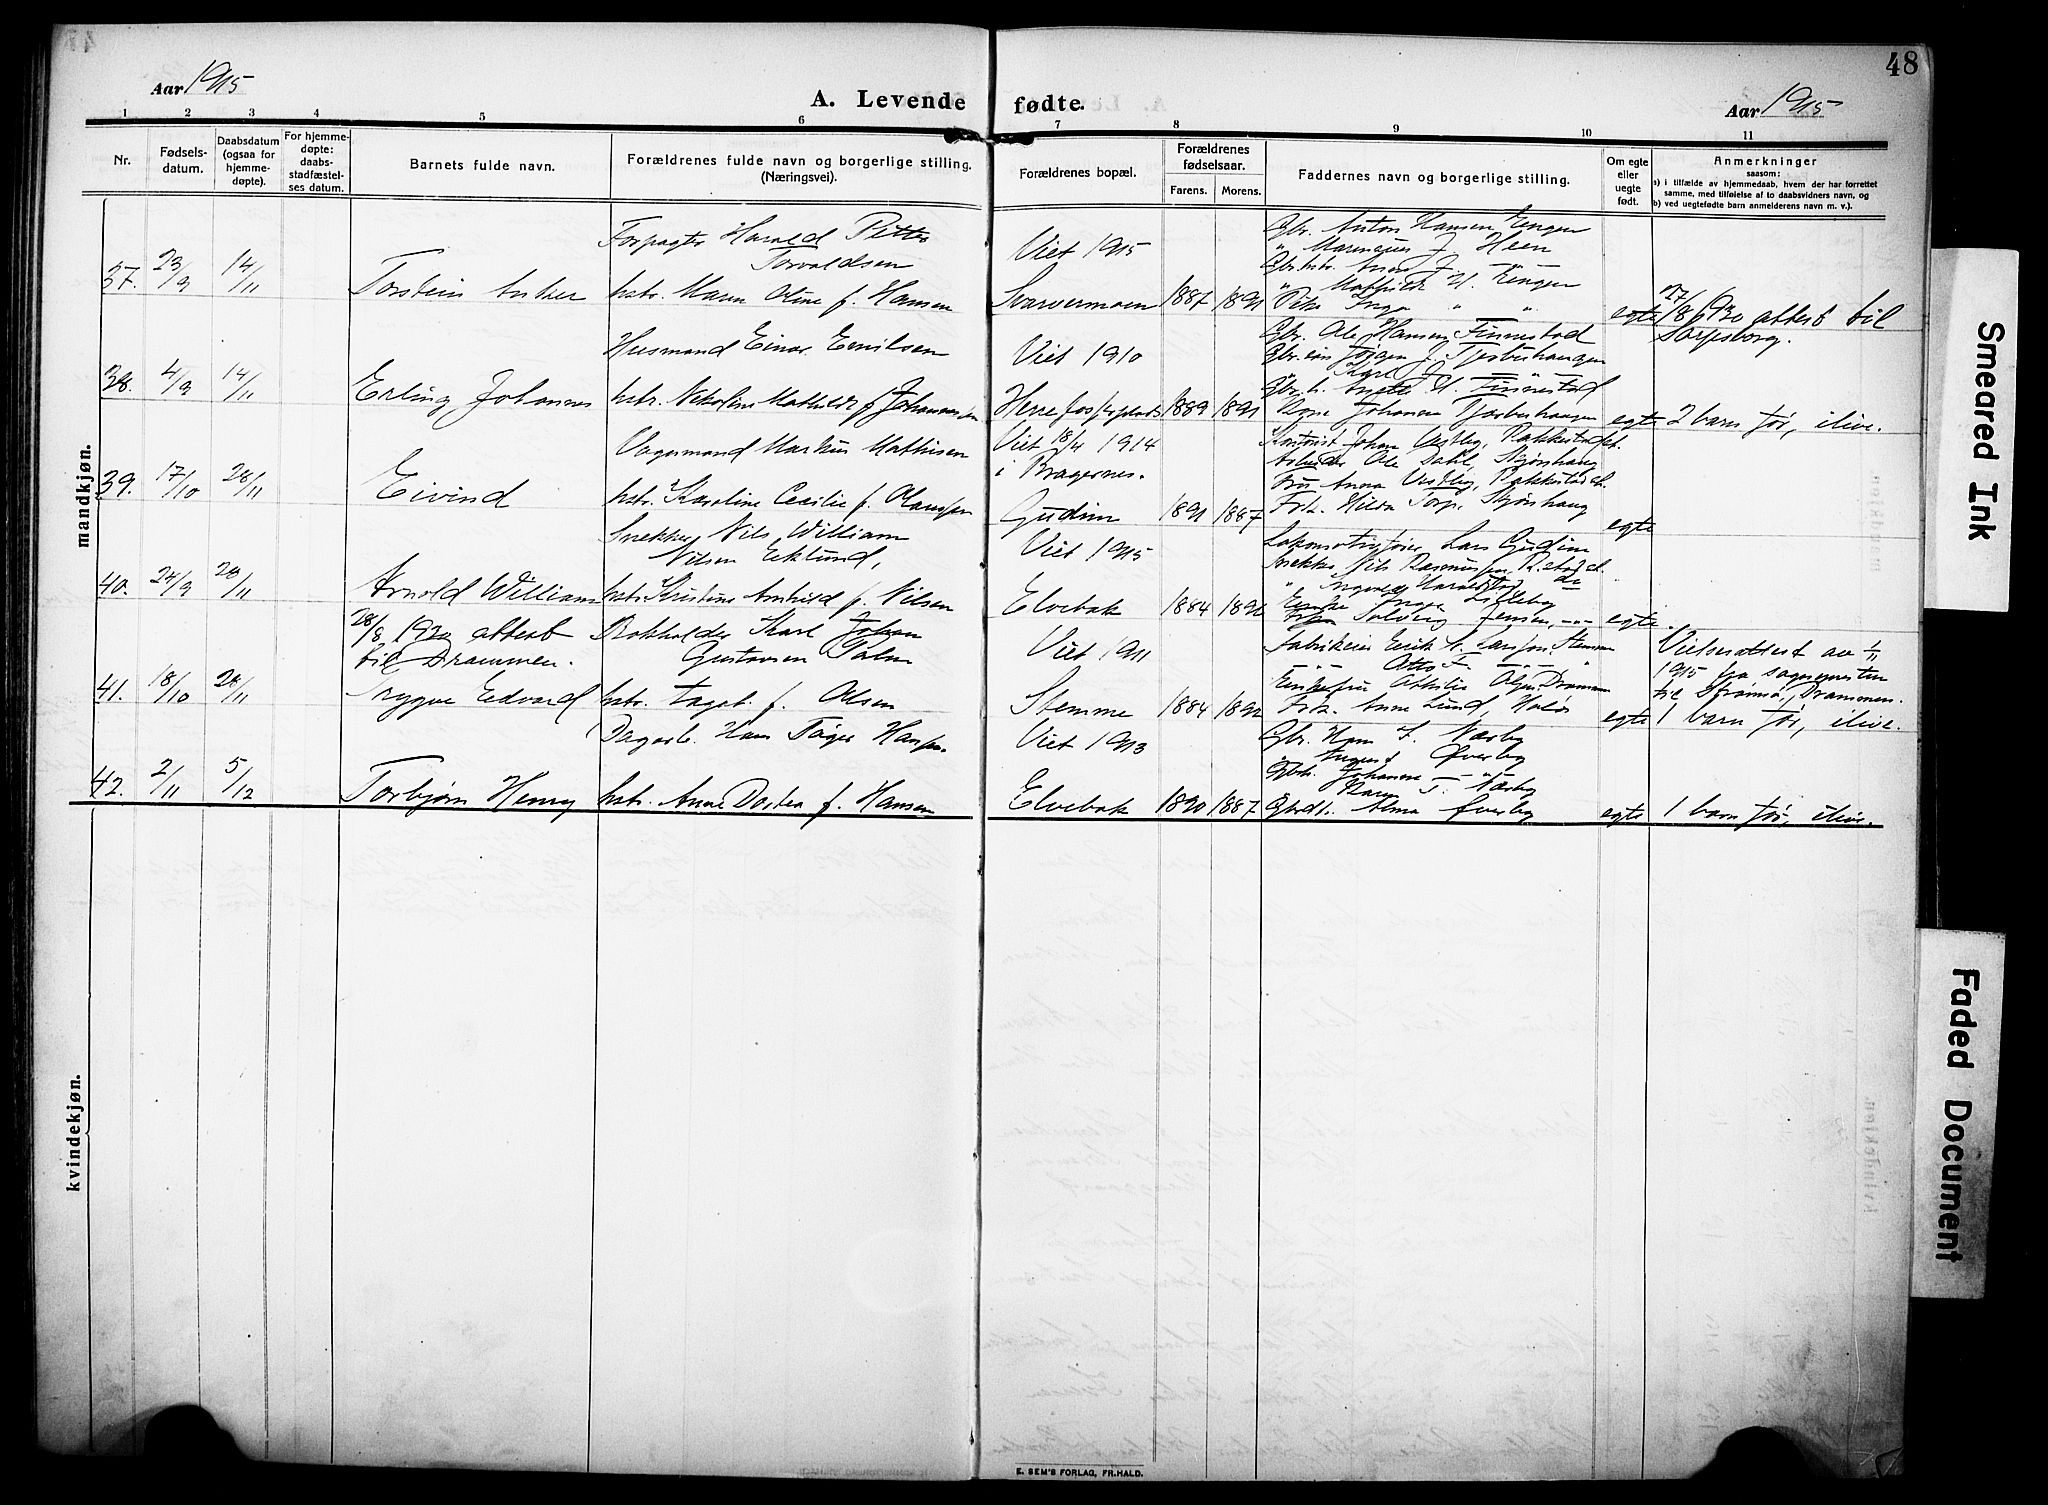 48
Aar 1915
A. Levende fødte.
Aar 1915
1 2 3 4 5 6 7 8 9 10 11
Nr.
Fødsels-
datum.
Daabsdatum
(ogsaa for
hjemme-
døpte).
For hjemme-
døpte:
daabs-
stadfæstel-
ses datum.
Barnets fulde navn.
Forældrenes fulde navn og borgerlige stilling.
(Næringsvei).
Forældrenes bopæl.
Forældrenes
fødselsaar.
Farens. Morens.
Faddernes navn og borgerlige stilling.
Om egte
eller
uegte
født.
Anmerkninger
saasom:
a) i tilfælde av hjemmedaab, hvem der har forrettet
samme, med tilføielse af to daabsvidners navn, og
b) ved uegtefødte barn anmelderens navn m. v.).
mandkjøn.
37. 23/9 14/11
Torstein Anker
Forpagter Harald Petter
Torvaldsen
hstr. Maren Oline f. Hansen
Viet 1915
Svarvermoen 1887 1891
Gbr. Anton Hansen Tenger
" Marenius J. Heen
Gbr.hstr. Anna J. "
" Mathilde H. Tenger
Pike Inga " "
egte
17/8 1930 attest til
Sarpsborg.
38. 4/9 14/11
Erling Johannes
Husmand Einar Emilsen
hstr. Nikoline Mathilde f. Johannessen
Viet 1910
1889 1891
Gbr. Ole Hansen Finnestad
Karl J. "
Gbr.h. Anette H. Finnestad
Johanna
egte
2 barn før, ilive.
39. 17/10 28/11
Eivind
Vognmand Markus Mathisen
hstr. Karoline Cecilie f. Olaussen
Viet 18/4 1914
i Bragernes.
Gudim 1891 1887
Kontorist Johan Vestby, Rakkestad st.
Arbeider Ole Dahl, Skjønhaug
Fru Anna Vestby, Rakkestad st.
Frk. Hilda Torp, Skjønhaug
egte
40. 24/9 28/11
Arnold William
Snekker Nils William
Nilsen Eklund,
hstr. Kristine Arnhild f. Nilsen
Viet 1915
Elvebak 1884 1891
Lokomotivfører Lars Gudim
Snekker Nils Rasmussen, R.stad st.
" Ingvald Haraldstad do
Enke Inga Lilleby
Solveig Jensen, -"-
egte.
28/8 1920 attest
til Drammen.
41. 18/10 28/11
Trygve Edvard
Bokholder Karl Johan
Gustavsen Palm
hstr. Dagot. f. Olsen
Viet 1911
Stemme 1884 1891
Fabrikeier Erik A. Larsen, Stemme
" Otto F. " "
Enkefru Ottilie Olsen, Drammen
Frk. Anna Lund, Halds
egte
Vielsesattest av 1/11
1915 fra sognepresten
til Strømsø, Drammen.
1 barn før, ilive.
42. 2/11 5/12
Torbjørn Henry
(Dagarb. Hans Tøger Hansen
hstr. Anne Dortea f. Hansen
Viet 1913
Elvebak 1890 1887
Gbr. Hans T. Nærby
" August Øverby
Gbrh. Johanne T. Nærby
Karen T. Nærby
Gbrdt. Alma Øverby
egte
1 barn før, ilive.
kvindekjøn.
E. SEM'S FORLAG, FR.HALD.
Smeared Ink
Faded Document